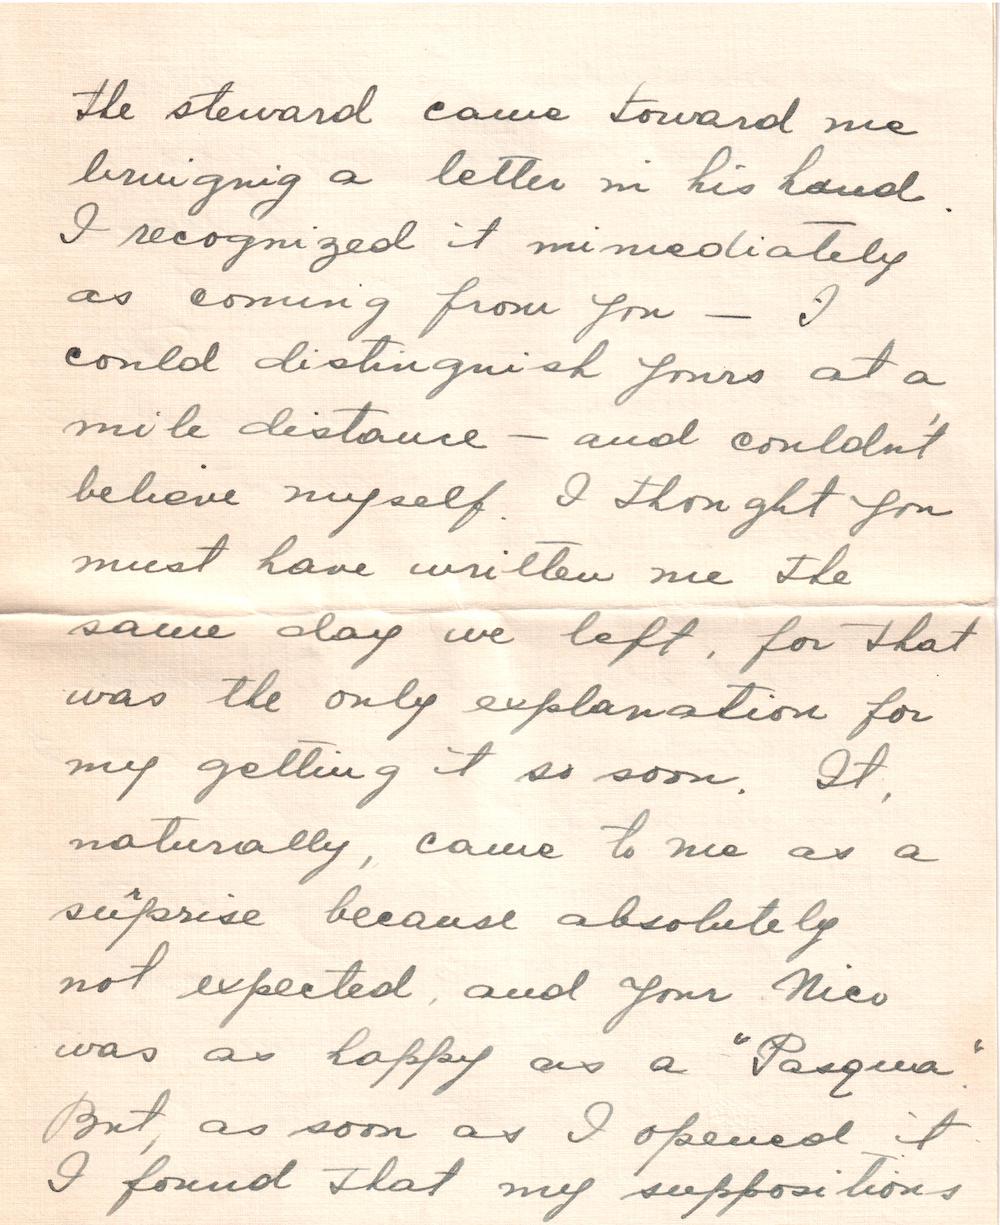 the steward came toward me
bringing a letter in his hand.
I recognized it immediately
as coming from you — I
could distinguish yours at a
mile distance — and couldn't
believe myself. I thought you
must have written me the
same day we left, for that
was the only explanation for
my getting it so soon. It,
naturally, came to me as a
surprise because absolutely
not expected, and your Nico
was as happy as a "Pasqua".
But, as soon as I opened it
I found that my suppositions